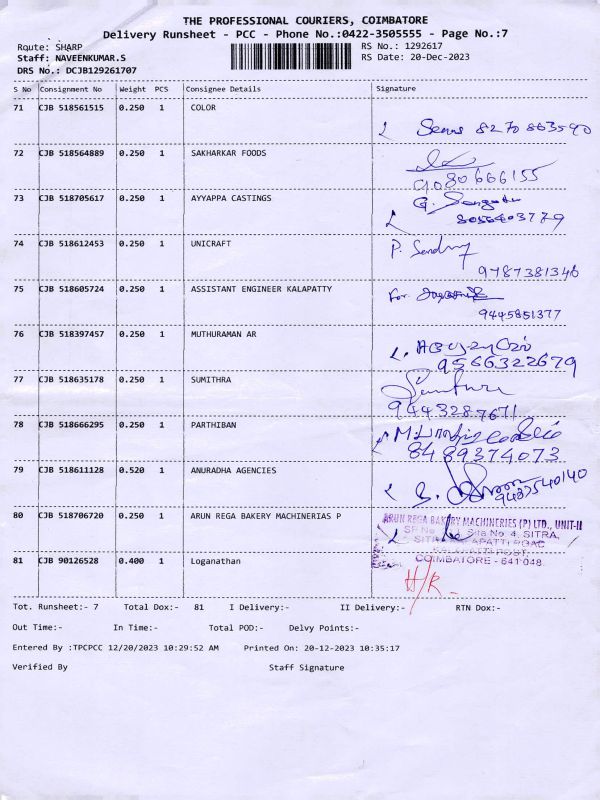 THE PROFESSIONAL COURIERS, COIMBATORE
Delivery Runsheet - PCC - Phone No.:0422-3505555 - Page No.:7
Route: SHARP
RS No.: 1292617
Staff: NAVEENKUMAR.S
RS Date: 20-Dec-2023
DRS No.: DCJB129261707
S No Consignment No Weight PCS Consignee Details Signature
71 CJB 518561515 0.250 1 COLOR
8270863590
72 CJB 518564889 0.250 1 SAKHARKAR FOODS
9080666155
73 CJB 518705617 0.250 1 AYYAPPA CASTINGS
G.
8056403779
74 CJB 518612453 0.250 1 UNICRAFT
P.
9787381346
75 CJB 518605724 0.250 1 ASSISTANT ENGINEER KALAPATTY
For
9445851377
76 CJB 518397457 0.250 1 MUTHURAMAN AR
9566322679
77 CJB 518635178 0.250 1 SUMITHRA
9443287671
78 CJB 518666295 0.250 1 PARTHIBAN
8489374073
79 CJB 518611128 0.520 1 ANURADHA AGENCIES
9487540140
80 CJB 518706720 0.250 1 ARUN REGA BAKERY MACHINERIAS P
ARUN REGA BAKERY MACHINERIES (P) LTD., UNIT-II
Site No 4, SITRA,
COIMBATORE - 641 048.
81 CJB 90126528 0.400 1 Loganathan
H/R
Tot. Runsheet:- 7 Total Dox:- 81 I Delivery:- II Delivery:- RTN Dox:-
Out Time:- In Time:- Total POD:- Delvy Points:-
Entered By :TPCPCC 12/20/2023 10:29:52 AM Printed On: 20-12-2023 10:35:17
Verified By Staff Signature